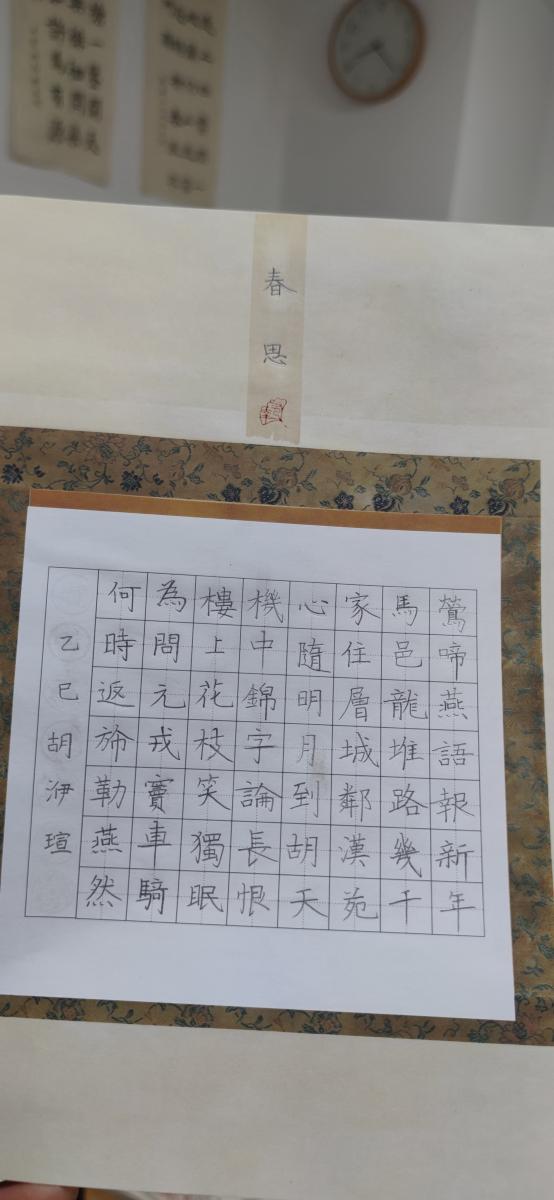 春思
鶯啼燕語報新年
馬邑龍堆路幾千
家住層城鄰漢苑
心隨明月到胡天
機中錦字論長恨
樓上花枝笑獨眠
為問元戎竇車騎
何時返旆勒燕然
乙巳胡洢瑄